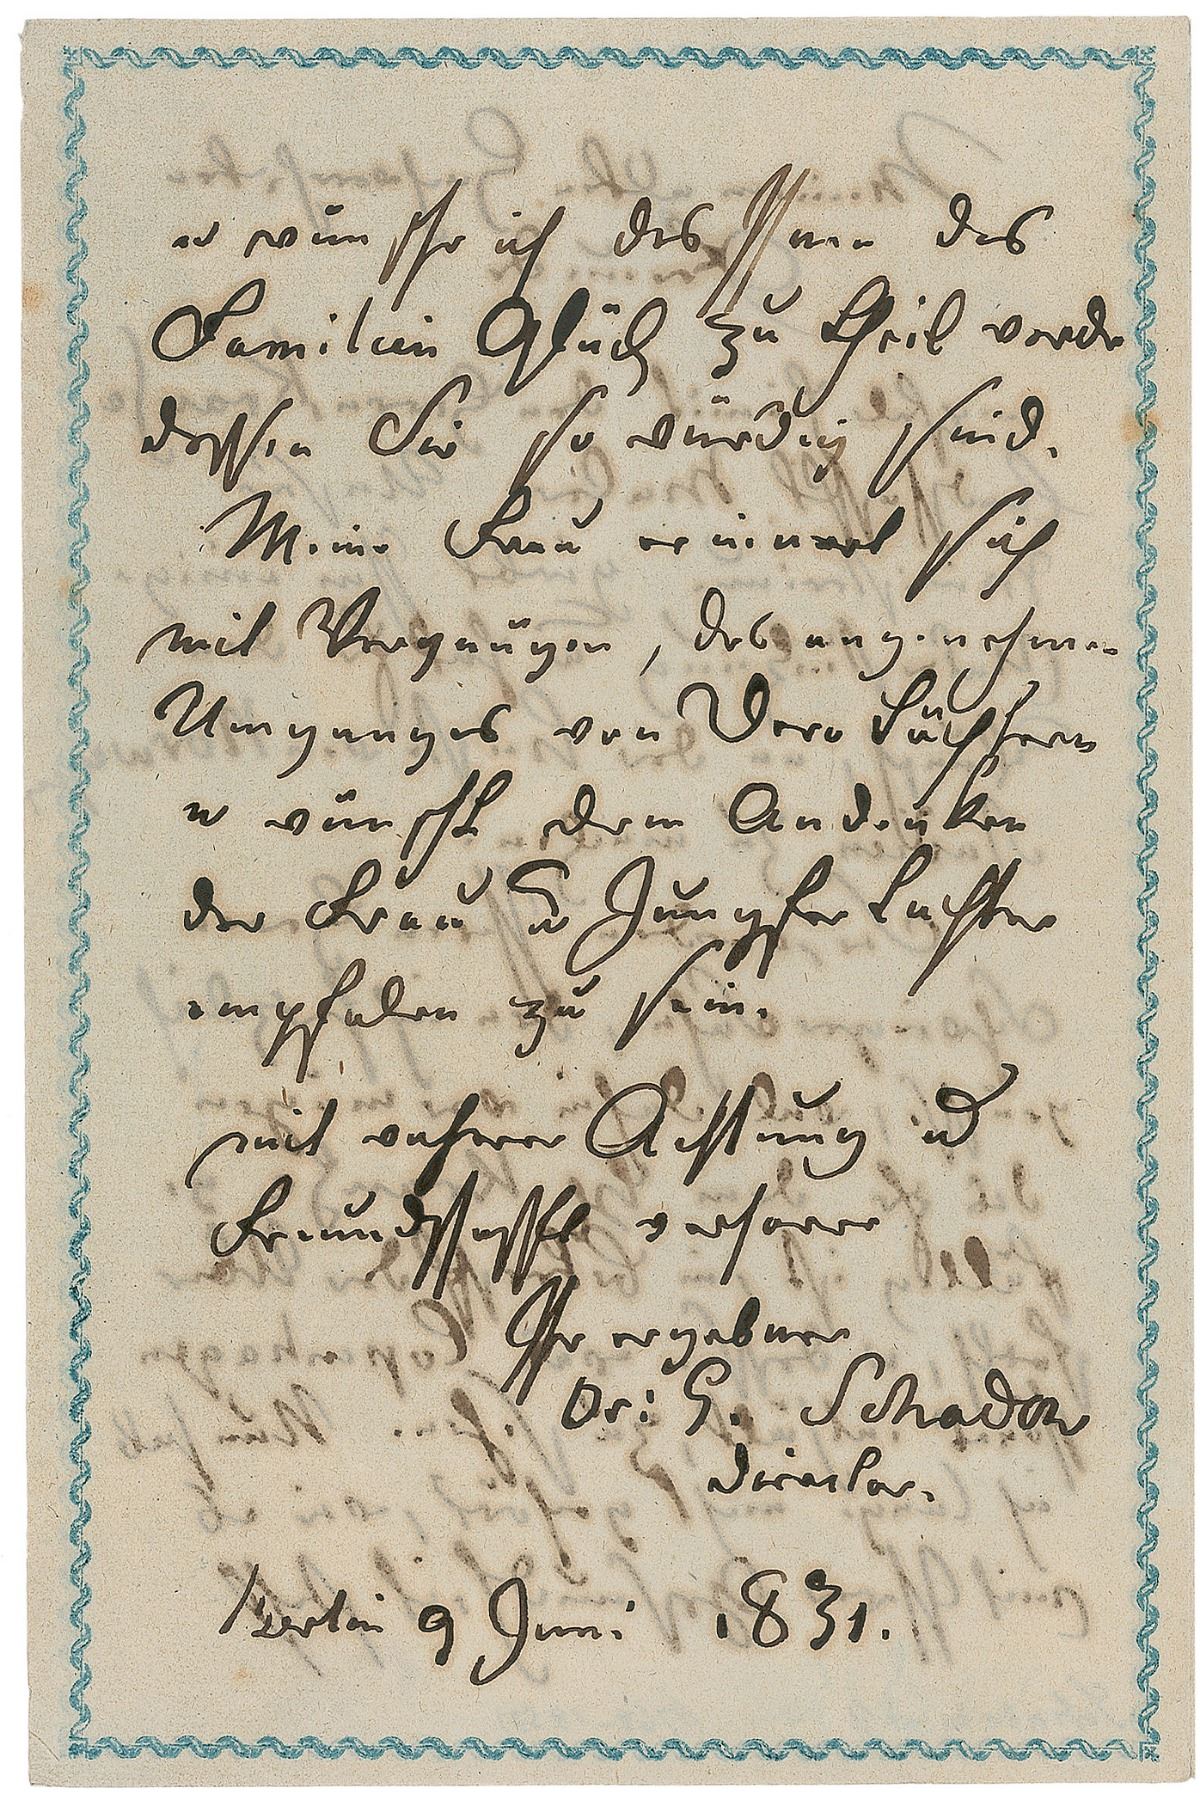 u wünsche ich das Ihnen das
Familien Glück zu theil werde
dessen Sie so würdig sind.
Meine Frau erinnert sich
mit Vergnügen, des angenehmen
Umganges von Dero Töchtern
u wünscht dem Andenken
der Frau u Jungfer Tochter
empfolen zu sein.
mit wahrer Achtung u
Freundschafft verharre
Ihr ergebner
Dr: G. Schadow
Director.
Berlin 9 Juni 1831.